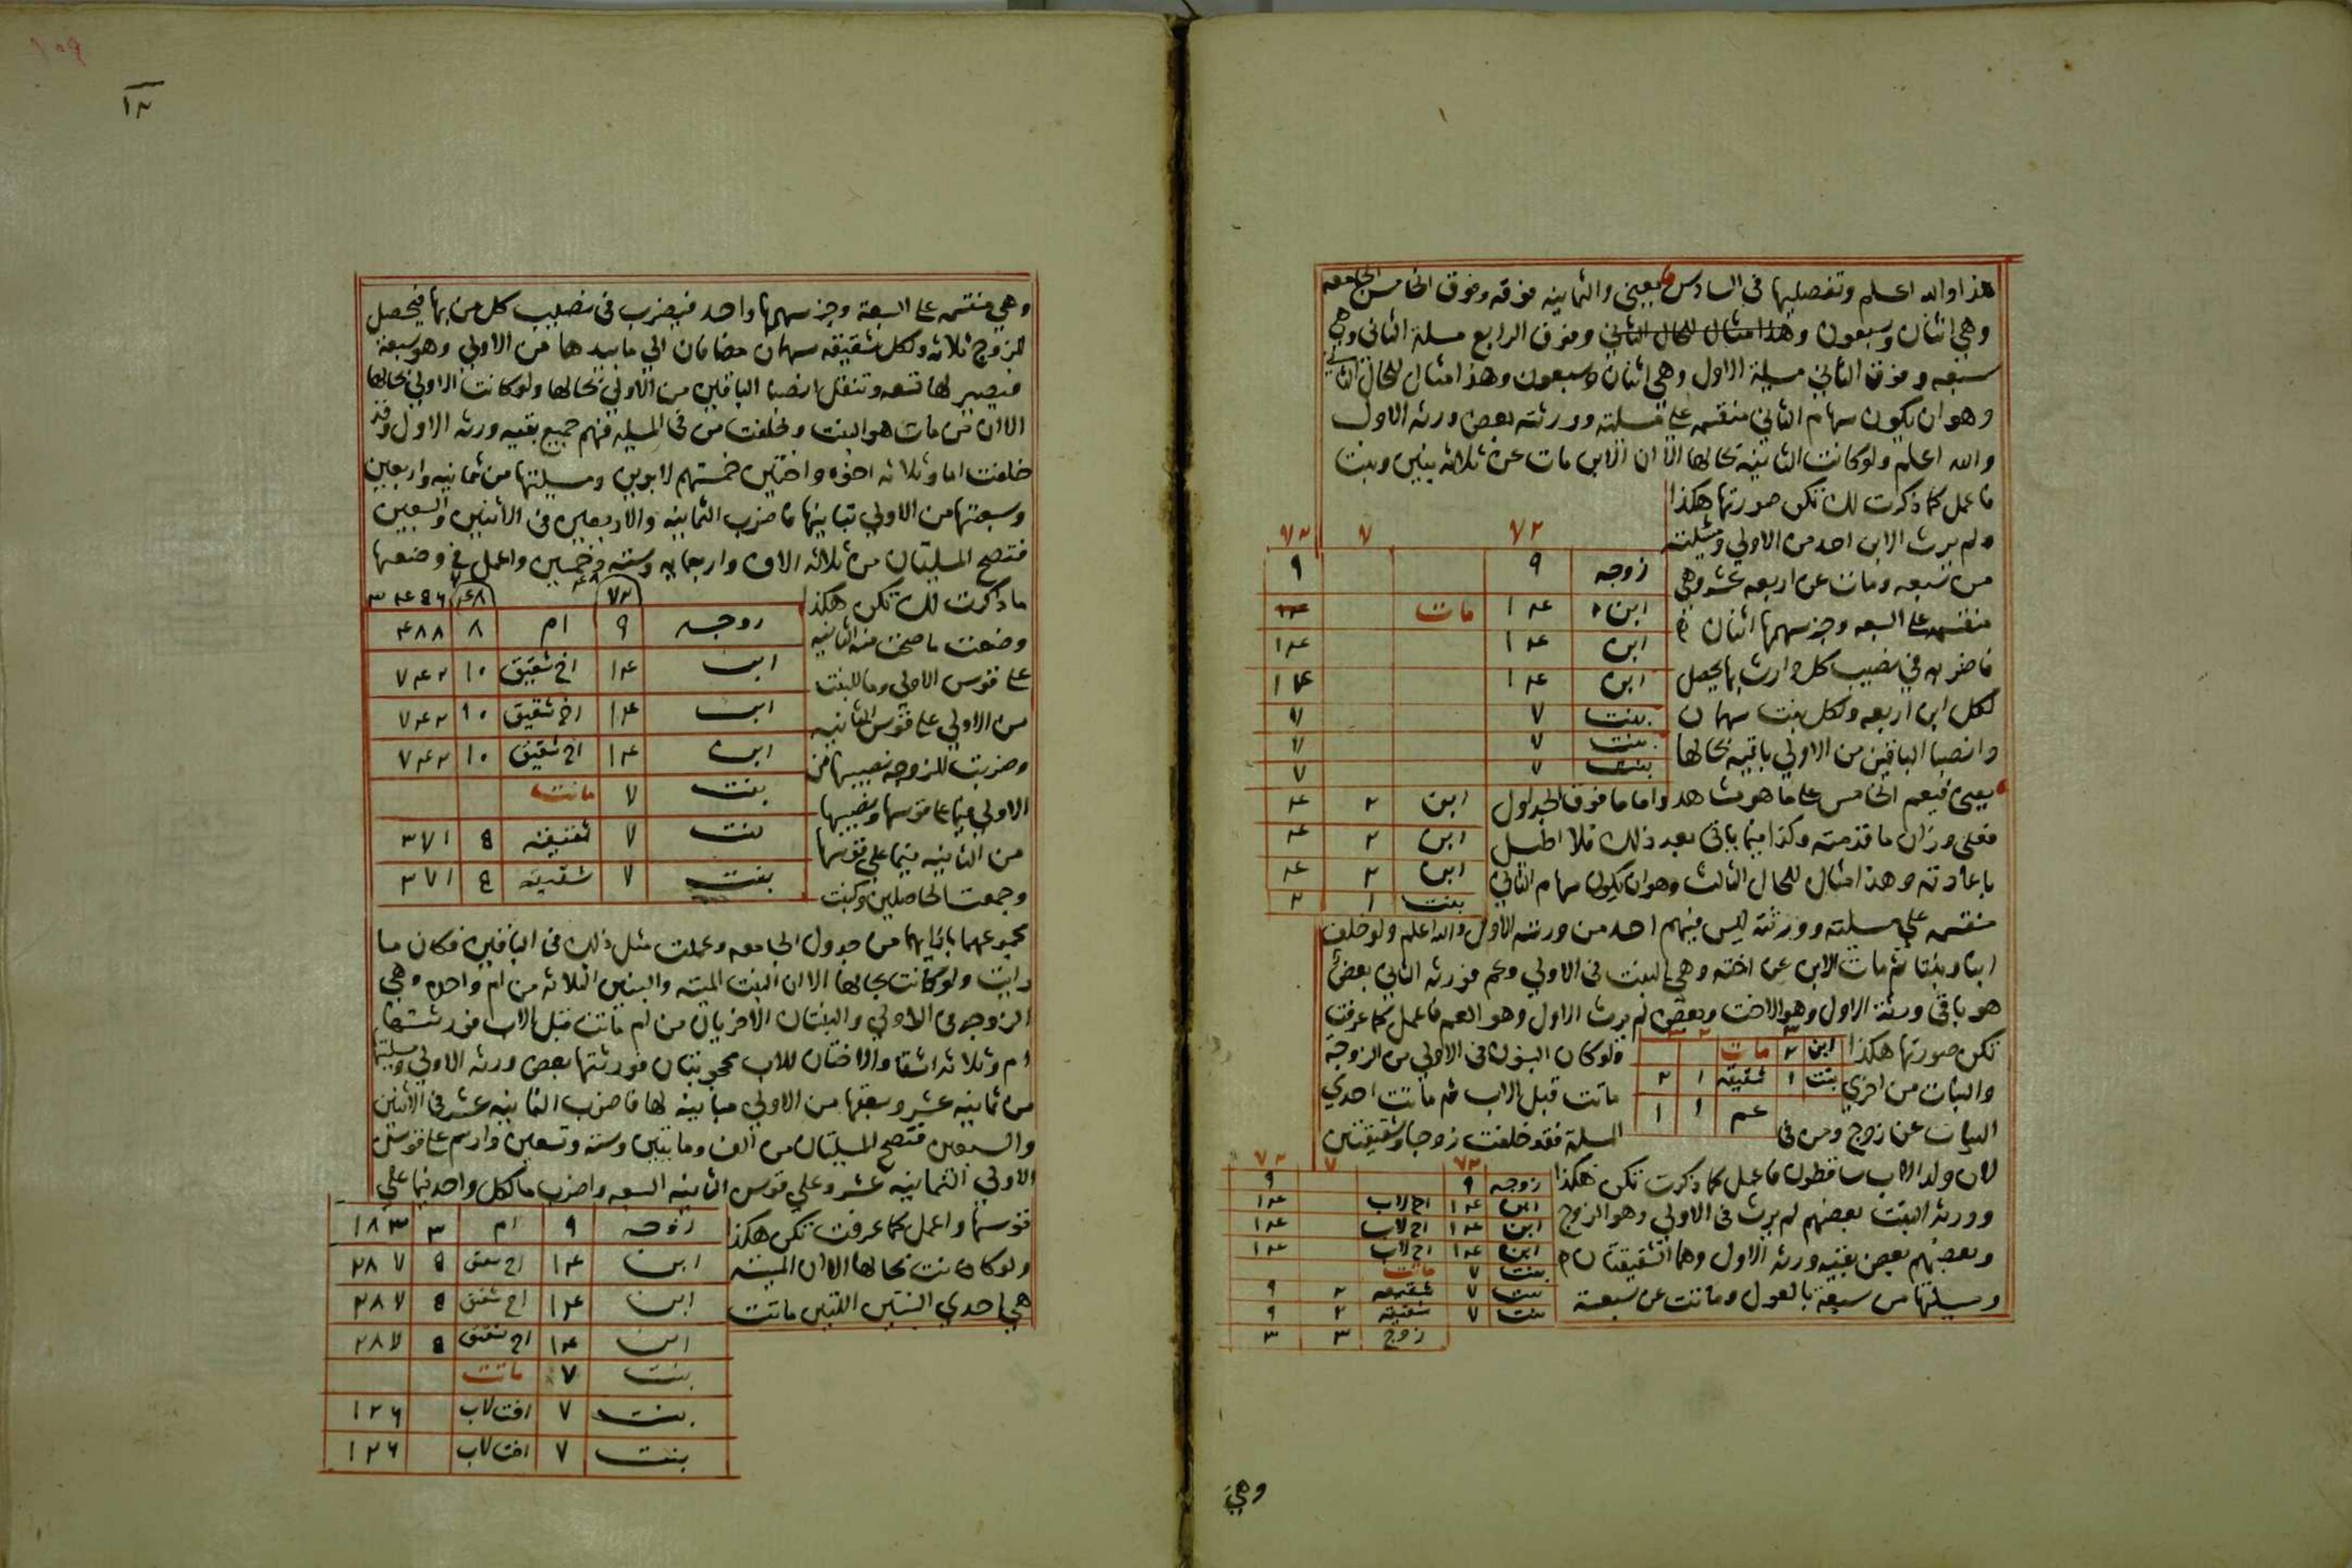 هذا والله اعلم وتفصيلها في السادس يعني والثمانية فوقه وفوق الخامس الجامعه
وهي اثنان وسبعون وهذا مثال للحال الثاني وفوق الرابع مسلة الثاني وهي
سبعه وفوق الثاني مسيلة الاول وهي اثنان وسبعون وهذا مثال للحال الثاني
وهو ان يكون سهام الثاني منقسمه علي مسلته وورثته بعض ورثه الاول
والله اعلم ولو كانت الثانيه بحالها الا ان الابن مات عن ثلاثه بنين وبنت
فاعمل كما ذكرت لك تكن صورتها هكذا
ولم يرث الابن احد من الاولي ومسيلته
من سبعه ومات عن اربعه عشر وهي
منقسمه علي السبعه وجز سهمها اثنان
فاضربه في نصيب كل وارث بها يحصل
لكل ابن اربعه ولكل بنت سهمان
وانصبا الباقين من الاولي باقيه بحالها
٧٢ ٧ ٧٢
زوجه ٩ ٩
ابن ١٤ مات
ابن ١٤ ١٤
ابن ١٤ ١٤
بنت ٧ ٧
بنت ٧ ٧
بنت ٧ ٧
ابن ٢ ٤
ابن ٢ ٤
ابن ٢ ٤
بنت ١ ٢
يعني فيعم الخامس علي ما هو مشاهد واما ما فوق الجدول
فعلي وزان ما قدمته وكذا فيما ياتي بعد ذلك فلا اطيل
باعادته وهذا مثال للحال الثالث وهو ان يكون سهام الثاني
منقسمه علي مسيلته وورثته ليس فيهم احد من ورثه الاول والله اعلم ولو خلف
ابنا وبنتا ثم مات الابن عن اخته وهي البنت في الاولي وعم فورثه الثاني بعضهم
هو باقي ورثة الاول وهو الاخت وبعضهم لم يرث الاول وهو العم فاعمل كما عرفت
تكن صورتها هكذا
ابن ٢ مات
بنت ١ شقيقه ١ ٢
عم ١ ١
ولو كان البنون في الاولي من الزوجة
والبنات من اخري ماتت قبل الاب ثم ماتت احدي
البنات عن زوج ومن في المسلة فقد خلفت زوجا وشقيقتين
لان ولد الاب ساقطون فاعمل كما ذكرت تكن هكذا
وورثه البنت بعضهم لم يرث في الاولي وهو الزوج
وبعضهم بعض بقيه ورثه الاول وهما الشقيقتان
ومسيلتها من سبعة بالعول وماتت عن سبعة
٧٢ ٧ ٧٢
زوجه ٩ ٩
ابن ١٤ اخ لاب ١٤
ابن ١٤ اخ لاب ١٤
ابن ١٤ اخ لاب ١٤
بنت ٧ ماتت
بنت ٧ شقيقه ٢ ٩
بنت ٧ شقيقه ٢ ٩
زوج ٣ ٣
وهي
١٢
وهي منقسمه علي السبعة وجز سهمها واحد فيضرب في نصيب كل من بها فيحصل
للزوج ثلاثه ولكل شقيقه سهمان مضافان الي ما بيدها من الاولي وهو سبعة
فيصير لها تسعه وتنقل انصبا الباقين من الاولي بحالها ولو كانت الاولي بحالها
الا ان من مات هو البنت وخلفت من في المسيله فهم جميع بقيه ورثه الاول وقد
خلفت اما وثلاثه اخوه واختين خمستهم لابوين ومسيلتها من ثمانيه واربعين
وسبعتها من الاولي تباينها فاضرب الثمانيه والاربعين في الاثنين والسبعين
فتصح المسيلتان من ثلاثه الاف واربعمايه وسته وخمسين واعمل في وضعها
ما ذكرت لك تكن هكذا
وضعت ما صحت منه الثانيه
علي قوس الاولي وما للبنت
من الاولي علي قوس الثانيه
وضربت للزوجه نصيبها من
الاولي فيما علي قوسها ونصيبها
من الثانيه فيما علي قوسها
وجمعت الحاصلين وكتبت
٧٢ ٤٨ ٣٤٥٦
زوجه ٩ ام ٨ ٤٨٨
ابن ١٤ اخ شقيق ١٠ ٧٤٢
ابن ١٤ اخ شقيق ١٠ ٧٤٢
ابن ١٤ اخ شقيق ١٠ ٧٤٢
بنت ٧ ماتت
بنت ٧ شقيقه ٥ ٣٧١
بنت ٧ شقيقه ٥ ٣٧١
مجموعهما بازايهما من جدول الجامعه وعملت مثل ذلك في الباقين فكان ما
رايت ولو كانت بحالها الا ان البنت الميته والبنين الثلاثه من ام واحده وهي
الزوجه في الاولي والبنتان الاخريان من ام ماتت قبل الاب فورثتها
ام وثلاثه اشقا والاختان للاب محجوبتان فورثتها بعض ورثه الاولي ومسيلتها
من ثمانيه عشر وسبعتها من الاولي مباينه لها فاضرب الثمانيه عشر في الاثنين
والسبعين فتصح المسيلتان من الف ومايتين وسته وتسعين وارسم علي قوس
الاولي الثمانيه عشر وعلي قوس الثانيه السبعه واضرب ما لكل واحد فيما علي
قوسها واعمل كما عرفت تكن هكذا
ولو كانت بحالها الا ان الميته
هي احدي البنتين اللتين ماتت
زوجه ٩ ام ٣ ١٨٣
ابن ١٤ اخ شقيق ٥ ٢٨٧
ابن ١٤ اخ شقيق ٥ ٢٨٧
ابن ١٤ اخ شقيق ٥ ٢٨٧
بنت ٧ ماتت
بنت ٧ اخت لاب ١٢٦
بنت ٧ اخت لاب ١٢٦